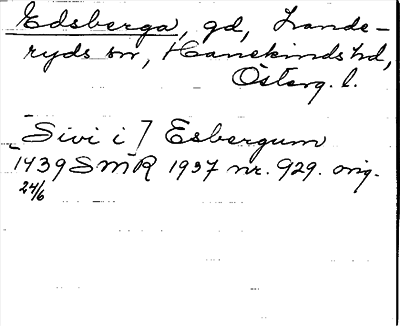 Edsberga, gd, Lande-
ryds sn, Hanekinds hd,
Österg. l.
Sivi i] Esbergum
1439 SMR 1937 nr. 929. orig.
24/6